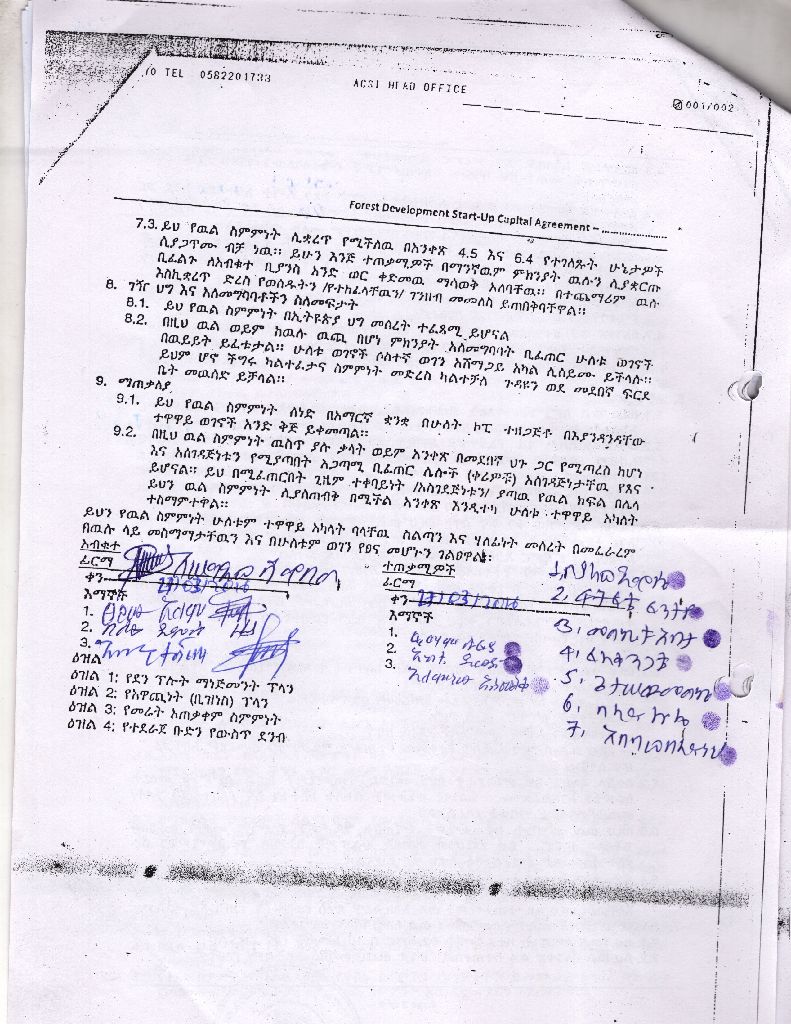 /0 TEL 0582201733 ACSI HEAD OFFICE 001/002
Forest Development Start-Up Capital Agreement – ......................
7.3. ይህ የዉል ስምምነት ሊቋረጥ የሚችለዉ በአንቀጽ 4.5 እና 6.4 የተገለጹት ሁኔታዎች
ሲያጋጥሙ ብቻ ነዉ። ይሁን እንጅ ተጠቃሚዎች በማንኛዉም ምክንያት ዉሉን ሲያቋርጡ
ቢፈልጉ ለአብቁተ ቢያንስ አንድ ወር ቀድመዉ ማሳወቅ አለባቸዉ። በተጨማሪም ዉሉ
እስኪቋረጥ ድረስ የወሰዱትን /የተከፈላቸዉን/ ገንዘብ መመለስ ይጠበቅባቸዋል።
8. ገዥ ህግ እና አለመግባባቶችን ስለመፍታት
8.1. ይህ የዉል ስምምነት በኢትዮጵያ ህግ መሰረት ተፈጻሚ ይሆናል
8.2. በዚህ ዉል ወይም ከዉሉ ዉጪ በሆነ ምክንያት አለመግባባት ቢፈጠር ሁለቱ ወገኖች
በዉይይት ይፈቱታል። ሁለቱ ወገኖች ሶስተኛ ወገን አሸማጋይ አካል ሊሰይሙ ይችላሉ።
ይህም ሆኖ ችግሩ ካልተፈታና ስምምነት መድረስ ካልተቻለ ጉዳዩን ወደ መደበኛ ፍርድ
ቤት መዉሰድ ይቻላል።
9. ማጠቃለያ
9.1. ይህ የዉል ስምምነት ሰነድ በአማርኛ ቋንቋ በሁለት ኮፒ ተዘጋጅቶ በእያንዳንዳቸው
ተዋዋይ ወገኖች አንድ ቅጅ ይቀመጣል።
9.2. በዚህ ዉል ስምምነት ዉስጥ ያሉ ቃላት ወይም አንቀጽ በመደበኛ ህጉ ጋር የሚጣረስ ከሆነ
እና አስገዳጅነቱን የሚያጣበት አጋጣሚ ቢፈጠር ሌሎች (ቀሪዎች) አስገዳጅነታቸዉ የጸና
ይሆናል። ይህ በሚፈጠርበት ጊዜም ተቀባይነት /አስገደጅነቱን/ ያጣዉ የዉል ክፍል በሌላ
ይህን ዉል ስምምነት ሊያስጠብቅ በሚችል አንቀጽ እንዲተካ ሁለቱ ተዋዋይ አካላት
ተስማምተዋል።
ይህን የዉል ስምምነት ሁለቱም ተዋዋይ አካላት ባላቸዉ ስልጣን እና ሃላፊነት መሰረት በመፈራረም
በዉሉ ላይ መስማማታቸዉን እና በሁለቱም ወገን የፀና መሆኑን ገልፀዋል፡
አብቁተ
ፊርማ
ቀን
እማኞች
1.
2.
3.
ተጠቃሚዎች
ፊርማ
ቀን
እማኞች
1.
2.
3.
2.
3.
4.
5.
6.
7.
ዕዝል
ዕዝል 1: የደን ፕሎት ማነጅመንት ፕላን
ዕዝል 2: የአዋጪነት (ቢዝነስ) ፕላን
ዕዝል 3: የመሬት አጠቃቀም ስምምነት
ዕዝል 4: የተደራጀ ቡድን የውስጥ ደንብ